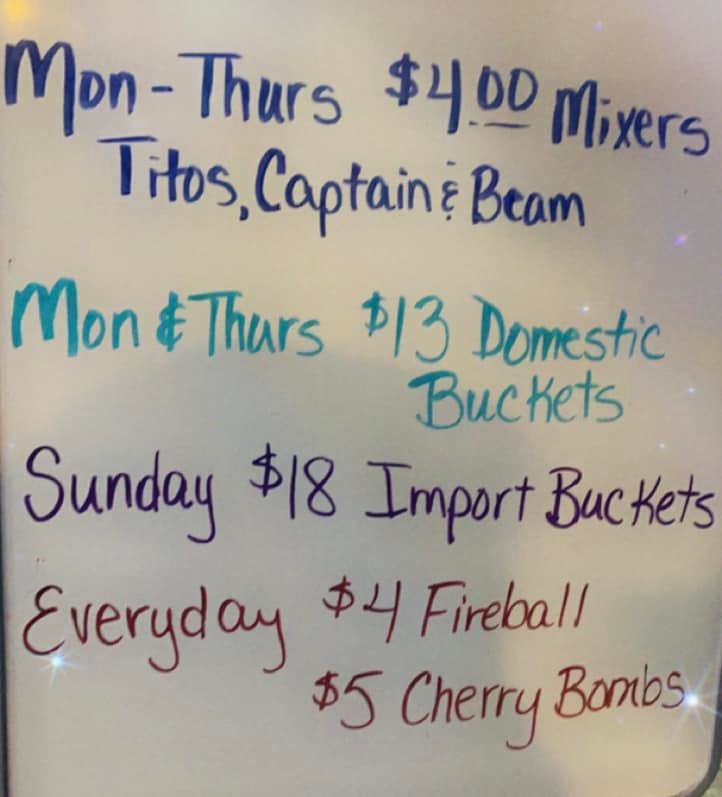 Mon-Thurs $4.00 Mixers
Titos, Captain & Beam
Mon & Thurs $13 Domestic
Buckets
Sunday $18 Import Buckets
Everyday $4 Fireball
$5 Cherry Bombs